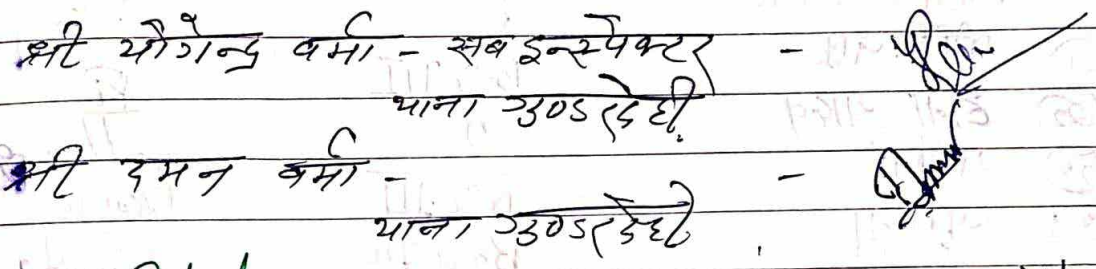 श्री योगेन्द्र वर्मा - सब इन्स्पेक्टर -
थाना गुण्डरदेही
श्री दमन वर्मा - -
थाना गुण्डरदेही